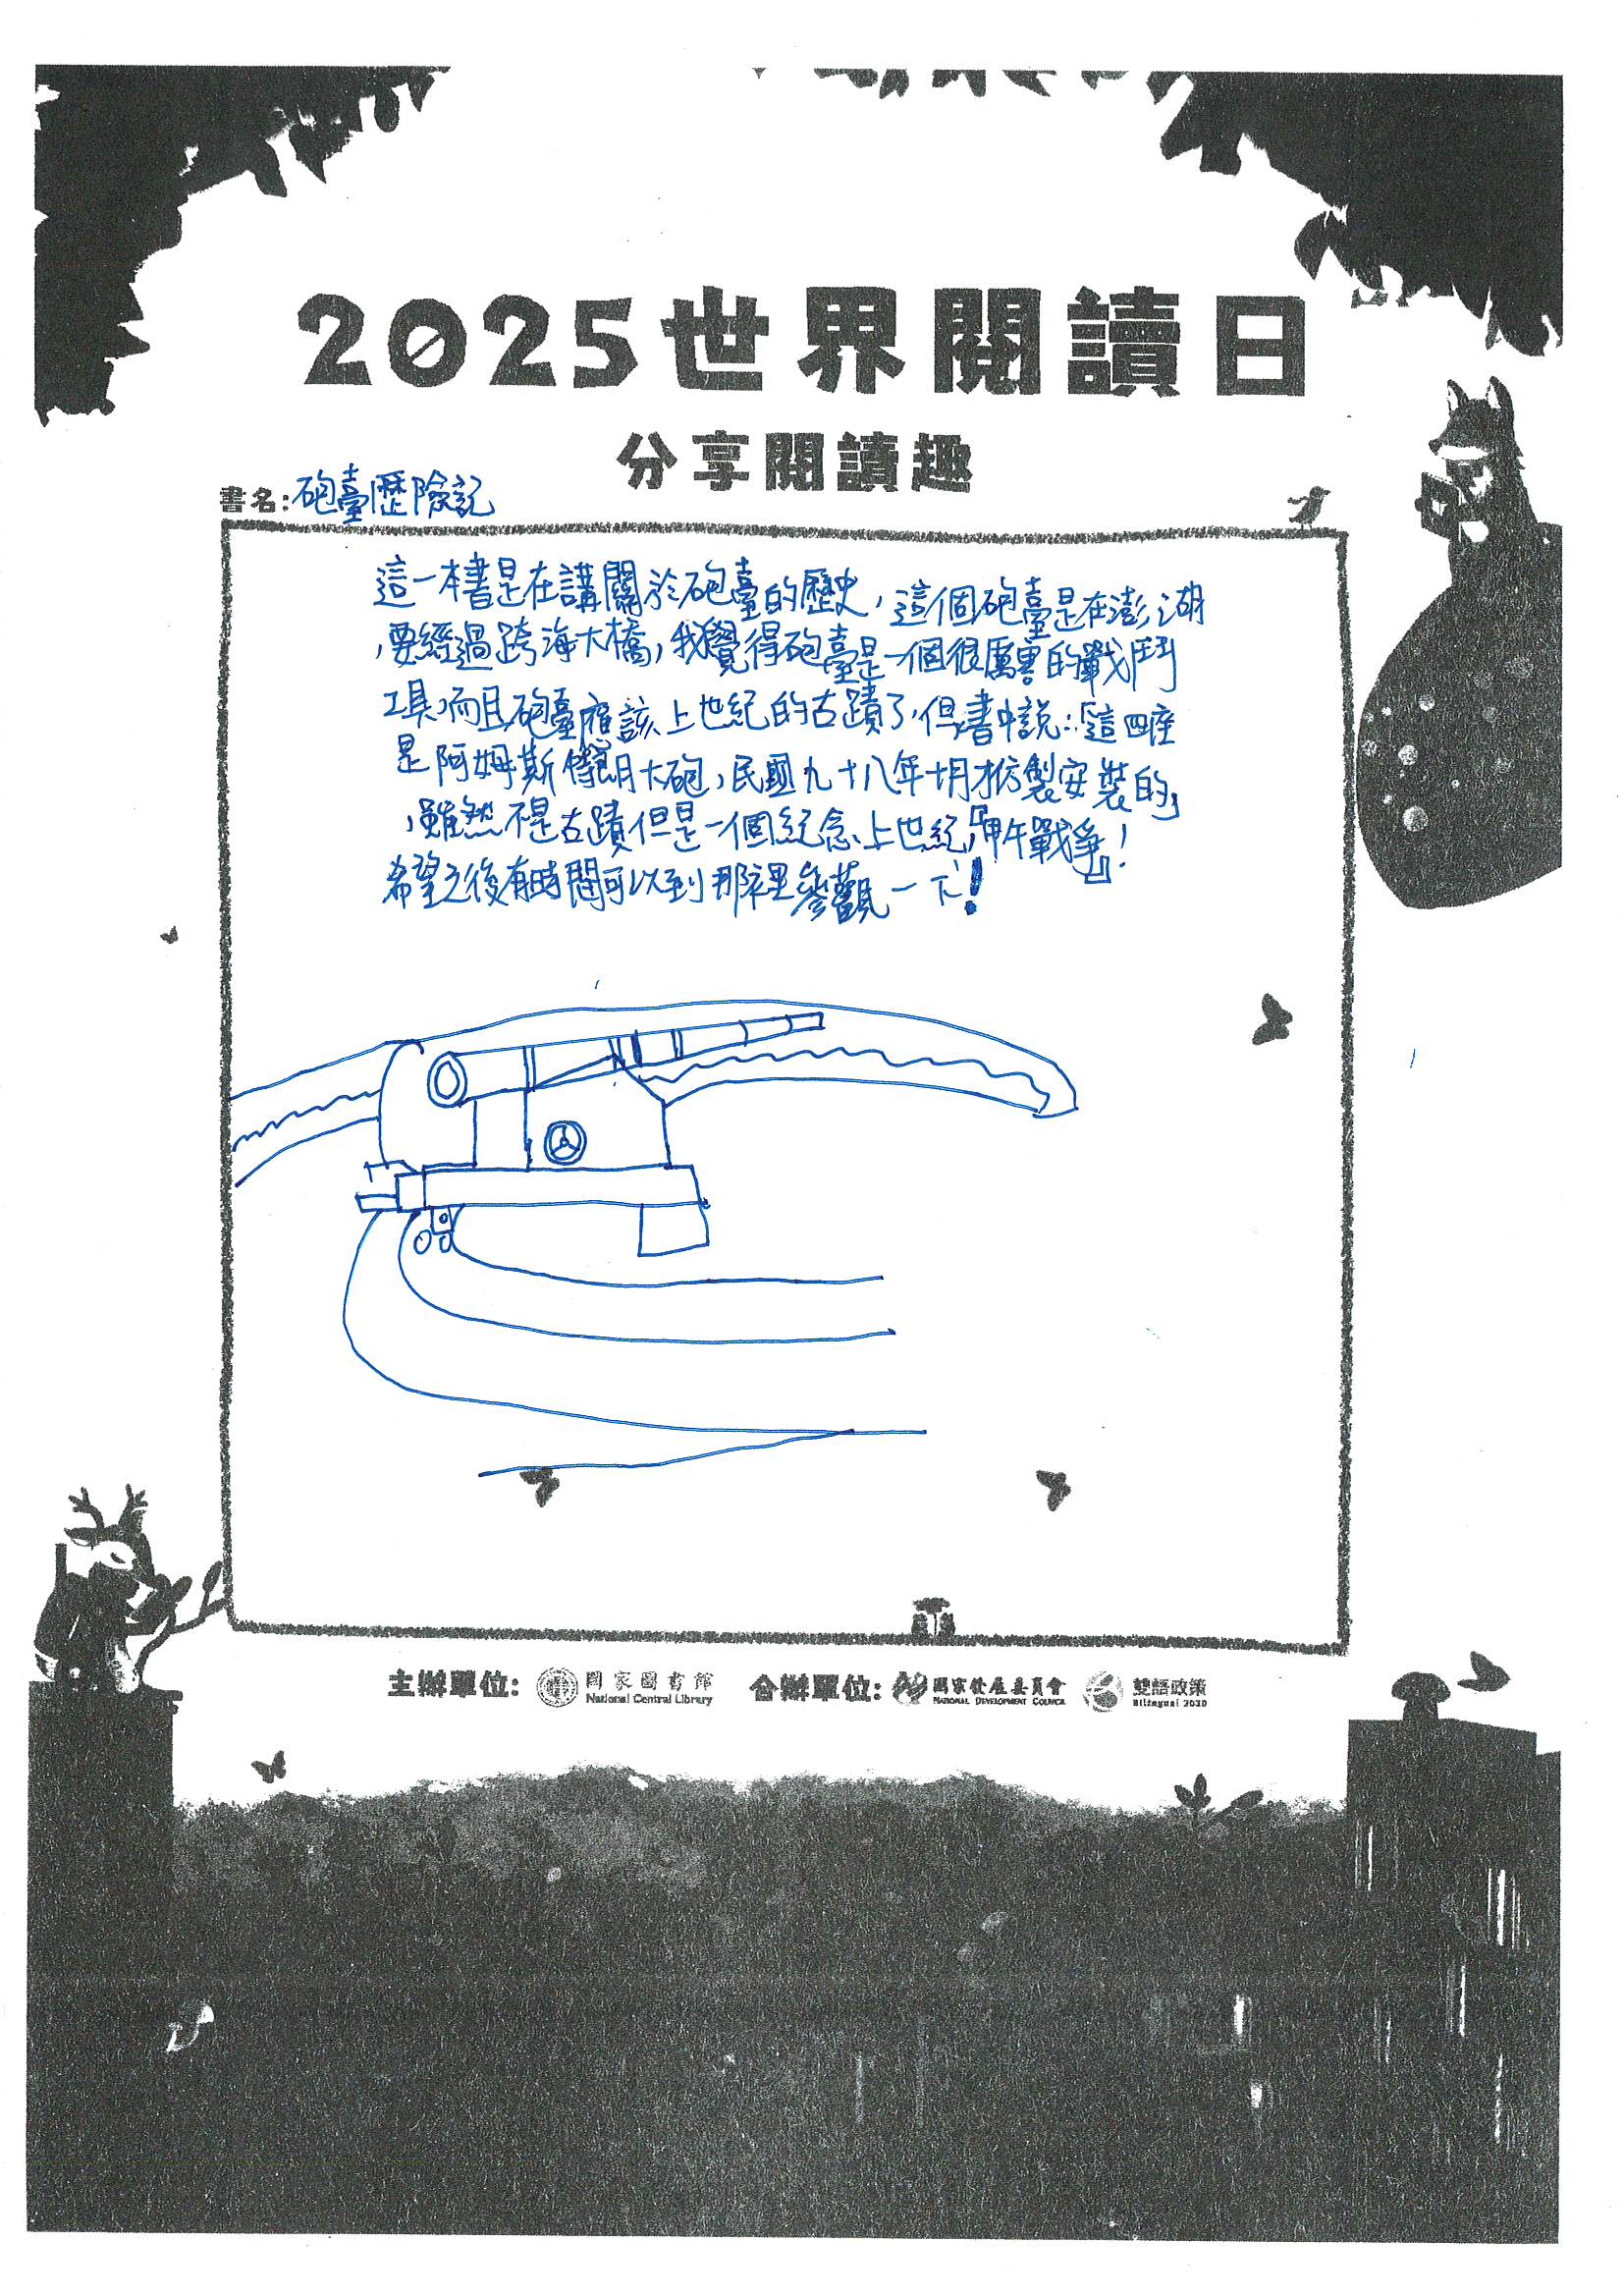 2025世界閱讀日
分享閱讀趣
書名:砲臺歷險記
這一本書是在講關於砲臺的歷史，這個砲臺是在澎湖
，要經過跨海大橋，我覺得砲臺是一個很厲害的戰鬥
工具，而且砲臺應該上世紀的古蹟了，但書中說：「這四座
是阿姆斯特朗大砲，民國九十八年十月才仿製安裝的」
，雖然不是古蹟但是一個紀念上世紀『甲午戰爭』！
希望之後有時間可以到那裡參觀一下！
主辦單位: 國家圖書館 National Central Library 合辦單位: 國家發展委員會 NATIONAL DEVELOPMENT COUNCIL 雙語政策 Bilingual 2030